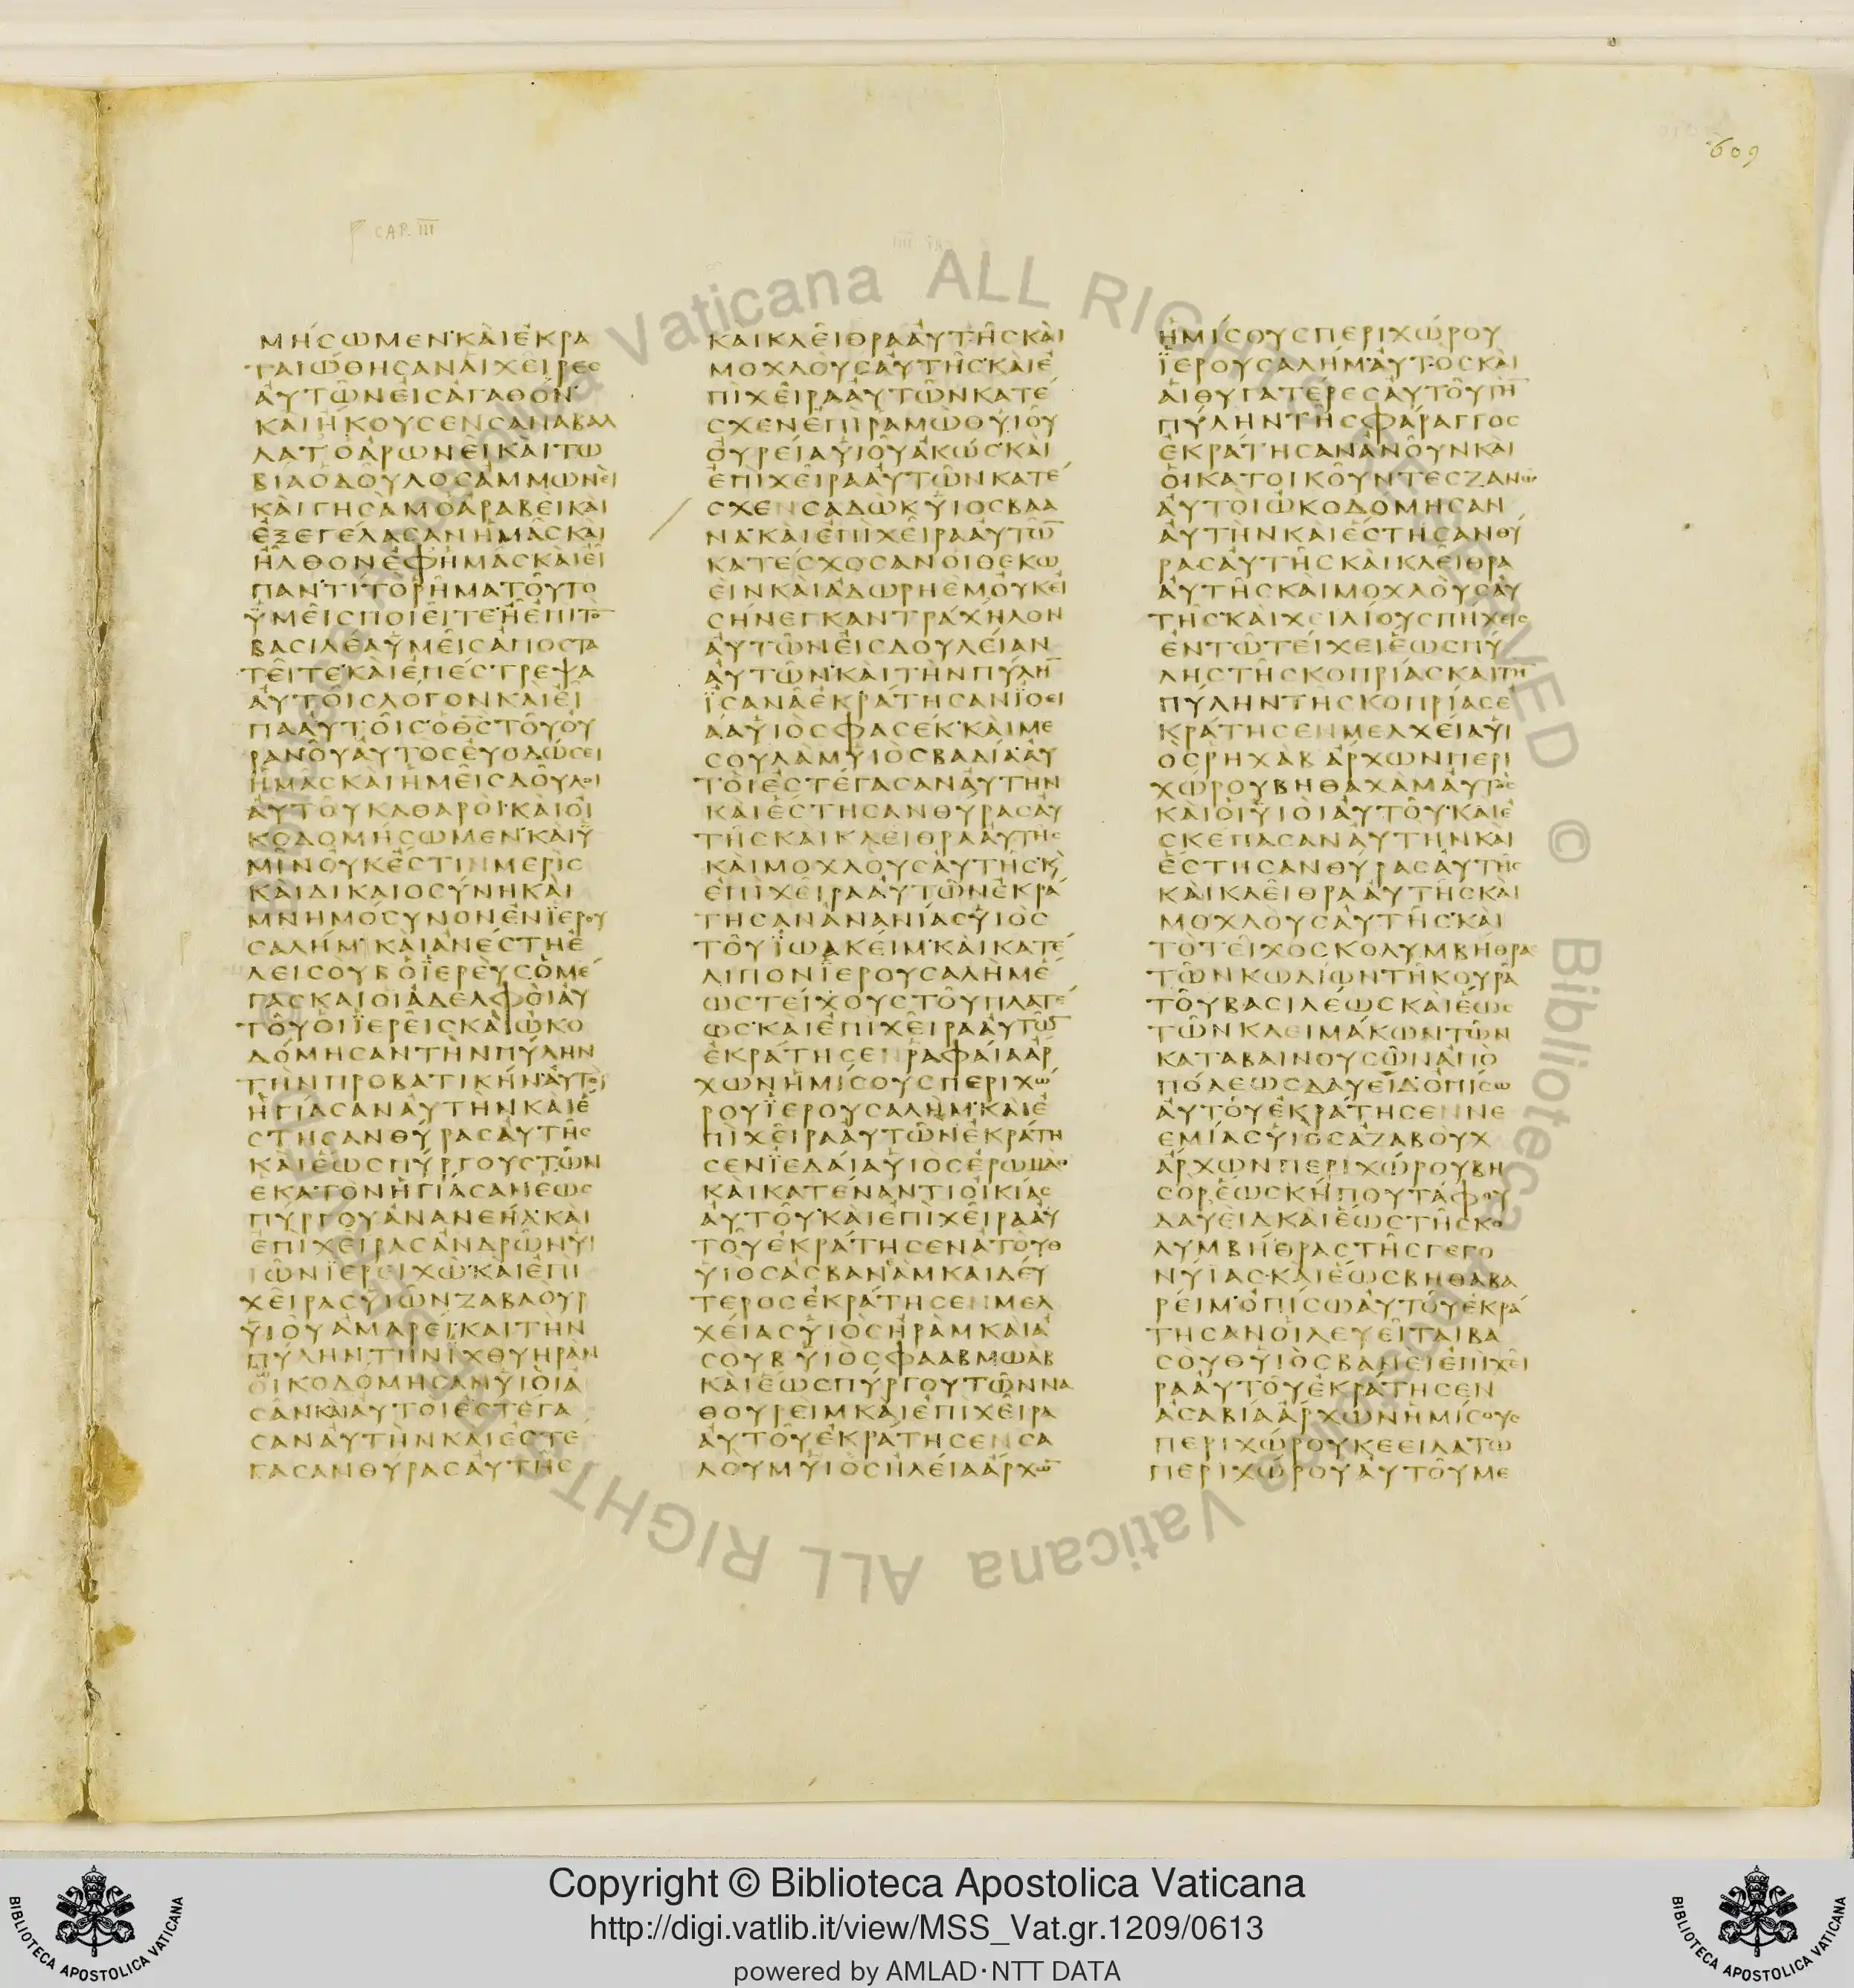 609
CAP. III
ΜΗΣΩΜΕΝ·ΚΑΙΕΚΡΑ
ΤΑΙΩΘΗΣΑΝΑΙΧΕΙΡΕΣ
ΑΥΤΩΝΕΙΣΑΓΑΘΟΝ
ΚΑΙΗΚΟΥΣΕΝΣΑΝΑΒΑΛ
ΛΑΤΟΑΡΩΝΕΙΚΑΙΤΩ
ΒΙΑΟΔΟΥΛΟΣΑΜΜΩΝΕΙ
ΚΑΙΓΗΣΑΜΟΑΡΑΒΕΙΚΑΙ
ΕΞΕΓΕΛΑΣΑΝΗΜΑΣΚΑΙ
ΗΛΘΟΝΕΦΗΜΑΣΚΑΙΕΙ
ΠΑΝ·ΤΙΤΟΡΗΜΑΤΟΥΤΟ
ΥΜΕΙΣΠΟΙΕΙΤΕΗΕΠΙΤΟ̅
ΒΑΣΙΛΕΑΥΜΕΙΣΑΠΟΣΤΑ
ΤΕΙΤΕ·ΚΑΙΕΠΕΣΤΡΕΨΑ
ΑΥΤΟΙΣΛΟΓΟΝΚΑΙΕΙ
ΠΑΑΥΤΟΙΣ·ΟΘ̅Σ̅ΤΟΥΟΥ
ΡΑΝΟΥΑΥΤΟΣΕΥΟΔΩΣΕΙ
ΗΜΑΣΚΑΙΗΜΕΙΣΔΟΥΛΟΙ
ΑΥΤΟΥΚΑΘΑΡΟΙ·ΚΑΙΟΙ
ΚΟΔΟΜΗΣΩΜΕΝ·ΚΑΙΥ
ΜΙΝΟΥΚΕΣΤΙΝΜΕΡΙΣ
ΚΑΙΔΙΚΑΙΟΣΥΝΗΚΑΙ
ΜΝΗΜΟΣΥΝΟΝΕΝΪΕΡΟΥ
ΣΑΛΗΜ·ΚΑΙΑΝΕΣΤΗΕ
ΛΕΙΣΟΥΒΟΪΕΡΕΥΣΟΜΕ
ΓΑΣΚΑΙΟΙΑΔΕΛΦΟΙΑΥ
ΤΟΥΟΙΪΕΡΕΙΣΚΑΙΩΚΟ
ΔΟΜΗΣΑΝΤΗΝΠΥΛΗΝ
ΤΗΝΠΡΟΒΑΤΙΚΗΝ·ΑΥΤΟΙ
ΗΓΙΑΣΑΝΑΥΤΗΝΚΑΙΕ
ΣΤΗΣΑΝΘΥΡΑΣΑΥΤΗΣ
ΚΑΙΕΩΣΠΥΡΓΟΥΣΤΩΝ
ΕΚΑΤΟΝΗΓΙΑΣΑΝΕΩΣ
ΠΥΡΓΟΥΑΝΑΝΕΗΛ·ΚΑΙ
ΕΠΙΧΕΙΡΑΣΑΝΔΡΩΝΥΙ
ΩΝΪΕΡΕΙΧΩ·ΚΑΙΕΠΙ
ΧΕΙΡΑΣΥΙΩΝΖΑΒΑΟΥΡ
ΥΙΟΥΑΜΑΡΕΙ·ΚΑΙΤΗΝ
ΠΥΛΗΝΤΗΝΪΧΘΥΗΡΑΝ
ΟΙΚΟΔΟΜΗΣΑΝΥΙΟΙΑ
ΣΑΝΚΑΙΑΥΤΟΙΕΣΤΕΓΑ
ΣΑΝΑΥΤΗΝΚΑΙΕΣΤΕ
ΓΑΣΑΝΘΥΡΑΣΑΥΤΗΣ
ΚΑΙΚΛΕΙΘΡΑΑΥΤΗΣΚΑΙ
ΜΟΧΛΟΥΣΑΥΤΗΣ·ΚΑΙΕ
ΠΙΧΕΙΡΑΑΥΤΩΝΚΑΤΕ
ΣΧΕΝΕΠΙΡΑΜΩΘΥΙΟΥ
ΟΥΡΕΙΑΥΙΟΥΑΚΩΣ·ΚΑΙ
ΕΠΙΧΕΙΡΑΑΥΤΩΝΚΑΤΕ
ΣΧΕΝΣΑΔΩΚΥΙΟΣΒΑΑ
ΝΑ·ΚΑΙΕΠΙΧΕΙΡΑΑΥΤΩ̅
ΚΑΤΕΣΧΟΣΑΝΟΙΘΕΚΩ
ΕΙΝΚΑΙΑΔΩΡΗΕΜΟΥΚΕΙ
ΣΗΝΕΓΚΑΝΤΡΑΧΗΛΟΝ
ΑΥΤΩΝΕΙΣΔΟΥΛΕΙΑΝ
ΑΥΤΩΝ·ΚΑΙΤΗΝΠΥΛΗ̅
ΪΣΑΝΑΕΚΡΑΤΗΣΑΝΪΟΕΙ
ΔΑΥΙΟΣΦΑΣΕΚ·ΚΑΙΜΕ
ΣΟΥΛΑΜΥΙΟΣΒΑΔΙΑ·ΑΥ
ΤΟΙΕΣΤΕΓΑΣΑΝΑΥΤΗΝ
ΚΑΙΕΣΤΗΣΑΝΘΥΡΑΣΑΥ
ΤΗΣΚΑΙΚΛΕΙΘΡΑΑΥΤΗΣ
ΚΑΙΜΟΧΛΟΥΣΑΥΤΗΣ·Κ̀
ΕΠΙΧΕΙΡΑΑΥΤΩΝΕΚΡΑ
ΤΗΣΑΝΑΝΑΝΙΑΣΥΙΟΣ
ΤΟΥΪΩΑΚΕΙΜ·ΚΑΙΚΑΤΕ
ΛΙΠΟΝΪΕΡΟΥΣΑΛΗΜΕ
ΩΣΤΕΙΧΟΥΣΤΟΥΠΛΑΤΕ
ΩΣ·ΚΑΙΕΠΙΧΕΙΡΑΑΥΤΩ̅
ΕΚΡΑΤΗΣΕΝΡΑΦΑΙΑΑΡ
ΧΩΝΗΜΙΣΟΥΣΠΕΡΙΧΩ
ΡΟΥΪΕΡΟΥΣΑΛΗΜ·ΚΑΙΕ
ΠΙΧΕΙΡΑΑΥΤΩΝΕΚΡΑΤΗ
ΣΕΝΪΕΔΑΙΑΥΙΟΣΕΡΩΜΑΘ
ΚΑΙΚΑΤΕΝΑΝΤΙΟΙΚΙΑΣ
ΑΥΤΟΥ·ΚΑΙΕΠΙΧΕΙΡΑΑΥ
ΤΟΥΕΚΡΑΤΗΣΕΝΑΤΟΥΘ
ΥΙΟΣΑΣΒΑΝΑΜ·ΚΑΙΔΕΥ
ΤΕΡΟΣΕΚΡΑΤΗΣΕΝΜΕΛ
ΧΕΙΑΣΥΙΟΣΗΡΑΜΚΑΙΑ
ΣΟΥΒΥΙΟΣΦΑΑΒΜΩΑΒ
ΚΑΙΕΩΣΠΥΡΓΟΥΤΩΝΝΑ
ΘΟΥΡΕΙΜΚΑΙΕΠΙΧΕΙΡΑ
ΑΥΤΟΥΕΚΡΑΤΗΣΕΝΣΑ
ΛΟΥΜΥΙΟΣΗΛΕΙΑΑΡΧΩ̅
ΗΜΙΣΟΥΣΠΕΡΙΧΩΡΟΥ
ΪΕΡΟΥΣΑΛΗΜ·ΑΥΤΟΣΚΑΙ
ΑΙΘΥΓΑΤΕΡΕΣΑΥΤΟΥΤΗ̅
ΠΥΛΗΝΤΗΣΦΑΡΑΓΓΟΣ
ΕΚΡΑΤΗΣΑΝΑΝΟΥΝΚΑΙ
ΟΙΚΑΤΟΙΚΟΥΝΤΕΣΖΑΝΩ
ΑΥΤΟΙΩΚΟΔΟΜΗΣΑΝ
ΑΥΤΗΝΚΑΙΕΣΤΗΣΑΝΘΥ
ΡΑΣΑΥΤΗΣΚΑΙΚΛΕΙΘΡΑ
ΑΥΤΗΣΚΑΙΜΟΧΛΟΥΣΑΥ
ΤΗΣ·ΚΑΙΧΕΙΛΙΟΥΣΠΗΧΕΙΣ
ΕΝΤΩΤΕΙΧΕΙΕΩΣΠΥ
ΛΗΣΤΗΣΚΟΠΡΙΑΣΚΑΙΤΗ̅
ΠΥΛΗΝΤΗΣΚΟΠΡΙΑΣΕ
ΚΡΑΤΗΣΕΝΜΕΛΧΕΙΑΥΙ
ΟΣΡΗΧΑΒΑΡΧΩΝΠΕΡΙ
ΧΩΡΟΥΒΗΘΑΧΑΜΑΥΤΟΣ
ΚΑΙΟΙΥΙΟΙΑΥΤΟΥ·ΚΑΙΕ
ΣΚΕΠΑΣΑΝΑΥΤΗΝΚΑΙ
ΕΣΤΗΣΑΝΘΥΡΑΣΑΥΤΗΣ
ΚΑΙΚΛΕΙΘΡΑΑΥΤΗΣΚΑΙ
ΜΟΧΛΟΥΣΑΥΤΗΣ·ΚΑΙ
ΤΟΤΕΙΧΟΣΚΟΛΥΜΒΗΘΡΑΣ
ΤΩΝΚΩΔΙΩΝΤΗΚΟΥΡΑ
ΤΟΥΒΑΣΙΛΕΩΣΚΑΙΕΩΣ
ΤΩΝΚΛΕΙΜΑΚΩΝΤΩΝ
ΚΑΤΑΒΑΙΝΟΥΣΩΝΑΠΟ
ΠΟΛΕΩΣΔΑΥΕΙΔ·ΟΠΙΣΩ
ΑΥΤΟΥΕΚΡΑΤΗΣΕΝΝΕ
ΕΜΙΑΣΥΙΟΣΑΖΑΒΟΥΧ
ΑΡΧΩΝΠΕΡΙΧΩΡΟΥΒΗ
ΣΟΡΕΩΣΚΗΠΟΥΤΑΦΟΥ
ΔΑΥΕΙΔΚΑΙΕΩΣΤΗΣΚΟ
ΛΥΜΒΗΘΡΑΣΤΗΣΓΕΓΟ
ΝΥΙΑΣ·ΚΑΙΕΩΣΒΗΘΑΒΑ
ΡΕΙΜ·ΟΠΙΣΩΑΥΤΟΥΕΚΡΑ
ΤΗΣΑΝΟΙΛΕΥΕΙΤΑΙΒΑ
ΣΟΥΘΥΙΟΣΒΑΝΕΙΕΠΙΧΕΙ
ΡΑΑΥΤΟΥΕΚΡΑΤΗΣΕΝ
ΑΣΑΒΙΑΑΡΧΩΝΗΜΙΣΟΥΣ
ΠΕΡΙΧΩΡΟΥΚΕΕΙΛΑΤΩ
ΠΕΡΙΧΩΡΟΥΑΥΤΟΥΜΕ
Vaticana ALL RIGHTS RESERVED © Biblioteca Apostolica Vaticana ALL RIGHTS
Copyright © Biblioteca Apostolica Vaticana
http://digi.vatlib.it/view/MSS_Vat.gr.1209/0613
powered by AMLAD·NTT DATA
BIBLIOTECA APOSTOLICA VATICANA
BIBLIOTECA APOSTOLICA VATICANA